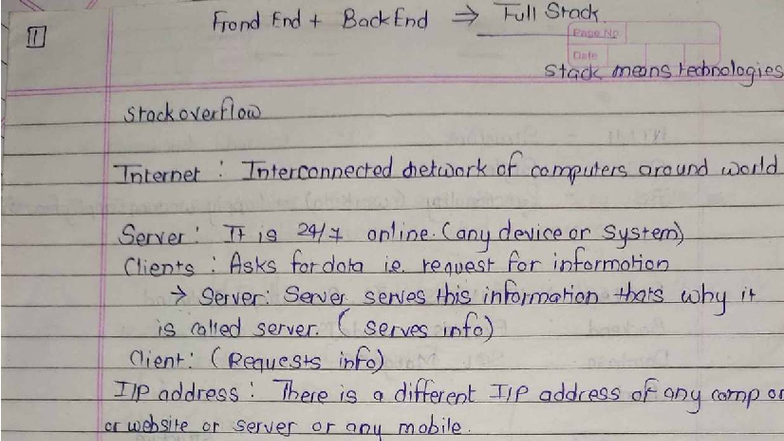 1
Frond End + Back End ⇒ Full Stack
Page No
Date
Stack means technologies
stackoverflow
Internet : Interconnected network of computers around world
Server : It is 24/7 online. (any device or System)
Clients : Asks for data i.e. request for information
→ Server : Server serves this information thats why it
is called server. ( serves info)
Client : (Requests info)
I/P address : There is a different I/P address of any comp or
or website or server or any mobile.